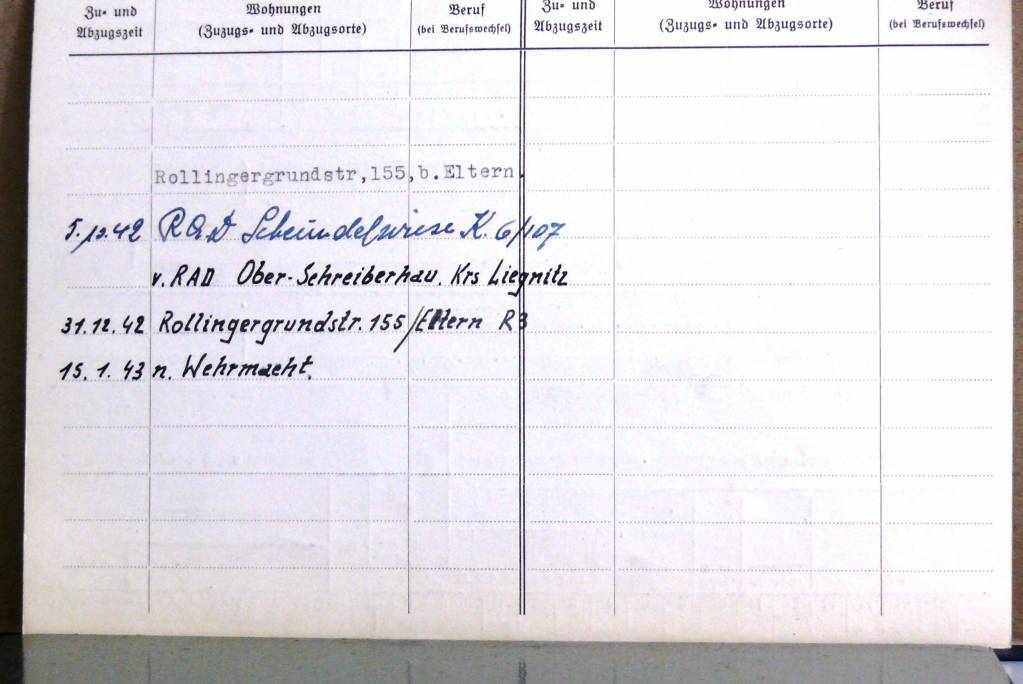 Zu- und Abzugszeit
Wohnungen
(Zuzugs- und Abzugsorte)
Beruf
(bei Berufswechsel)
Zu- und Abzugszeit
Wohnungen
(Zuzugs- und Abzugsorte)
Beruf
(bei Berufswechsel)
Rollingergrundstr,155,b.Eltern.
42 RAD K. 6/107
v. RAD Ober-Schreiberhau. Krs Liegnitz
31.12.42 Rollingergrundstr. 155/Eltern
15.1.43 n. Wehrmacht.